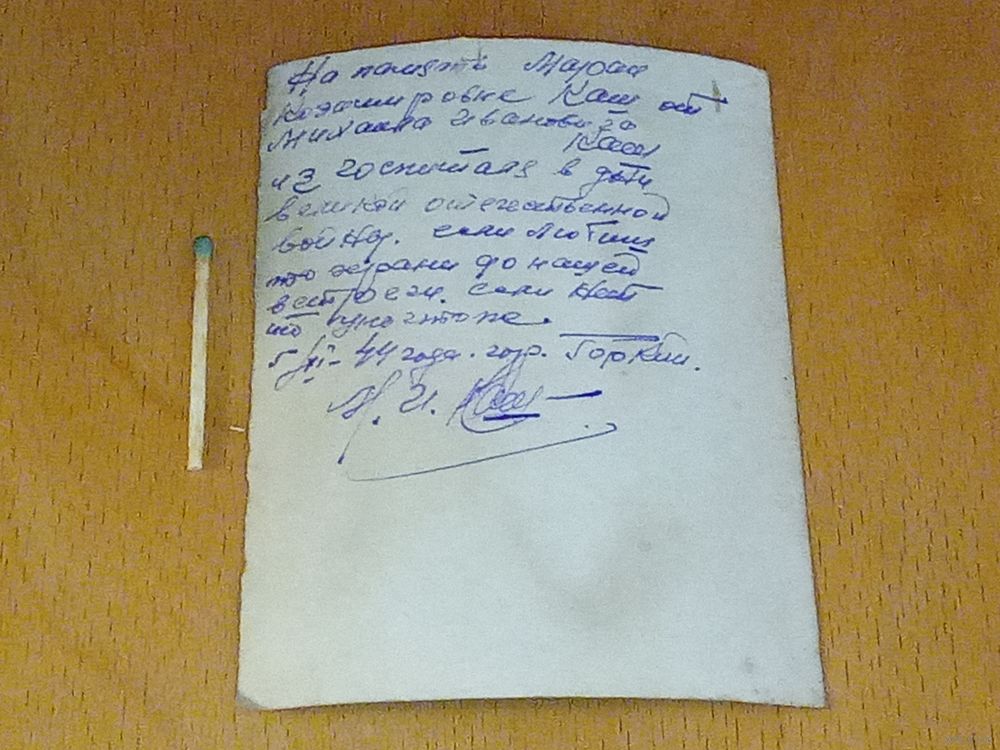 На память Марии
Казимировне Каш от
Михаила Ивановича
Каш
из госпиталя в дни
великой отечественной
войны. если любиш
то храни до нашей
встречи. если нет
то уничтож.
5/II-44 года. гор. Горкий.
М. И. Каш